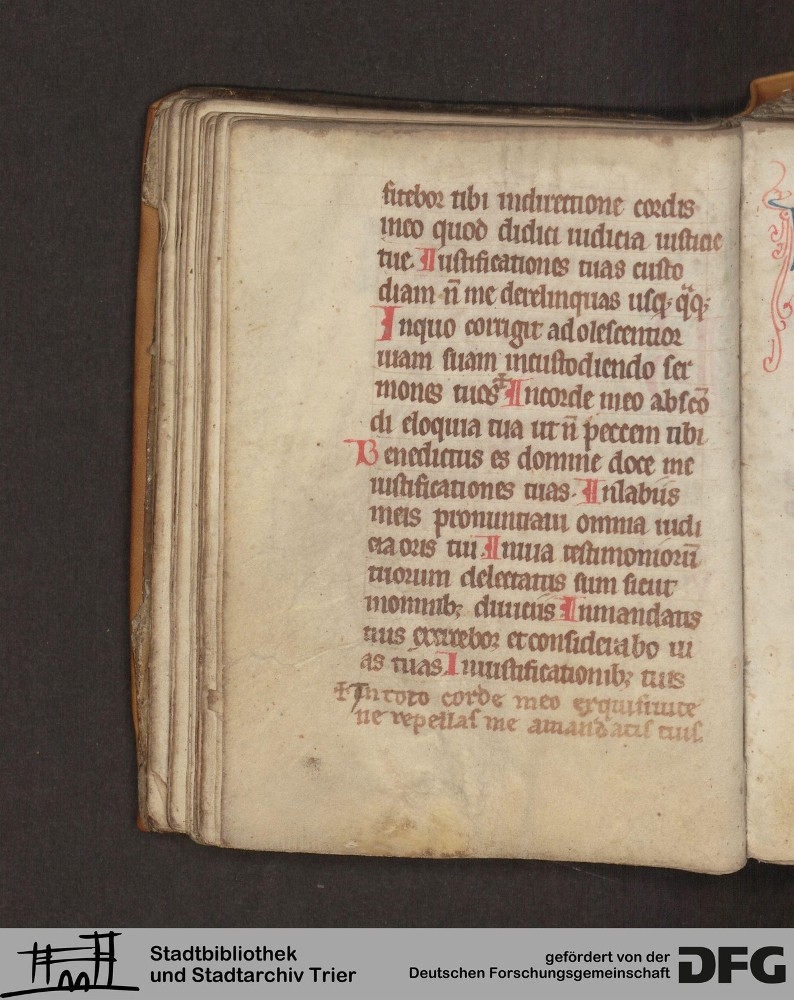 fitebor tibi indirectione cordis
meo quod didici iudicia iusticie
tue Iustificationes tuas custo
diam n̄ me derelinquas usq; q̄q;
Inquo corrigit adolescentior
uiam suam incustodiendo ser
mones tuos + Incorde meo abscō
di eloquia tua ut n̄ peccem tibi
Benedictus es domine doce me
iustificationes tuas. Inlabiis
meis pronuntiaui omnia iudi
cia oris tui Inuia testimoniorū
tuorum delectatus sum sicut
inomnib; diuiciis Inmandatis
tuis exercebor et considerabo ui
as tuas Iniustificationib; tuis
+ In toto corde meo exquisiuite
ne repellas me amandatis tuis.
Stadtbibliothek
und Stadtarchiv Trier
gefördert von der
Deutschen Forschungsgemeinschaft
DFG